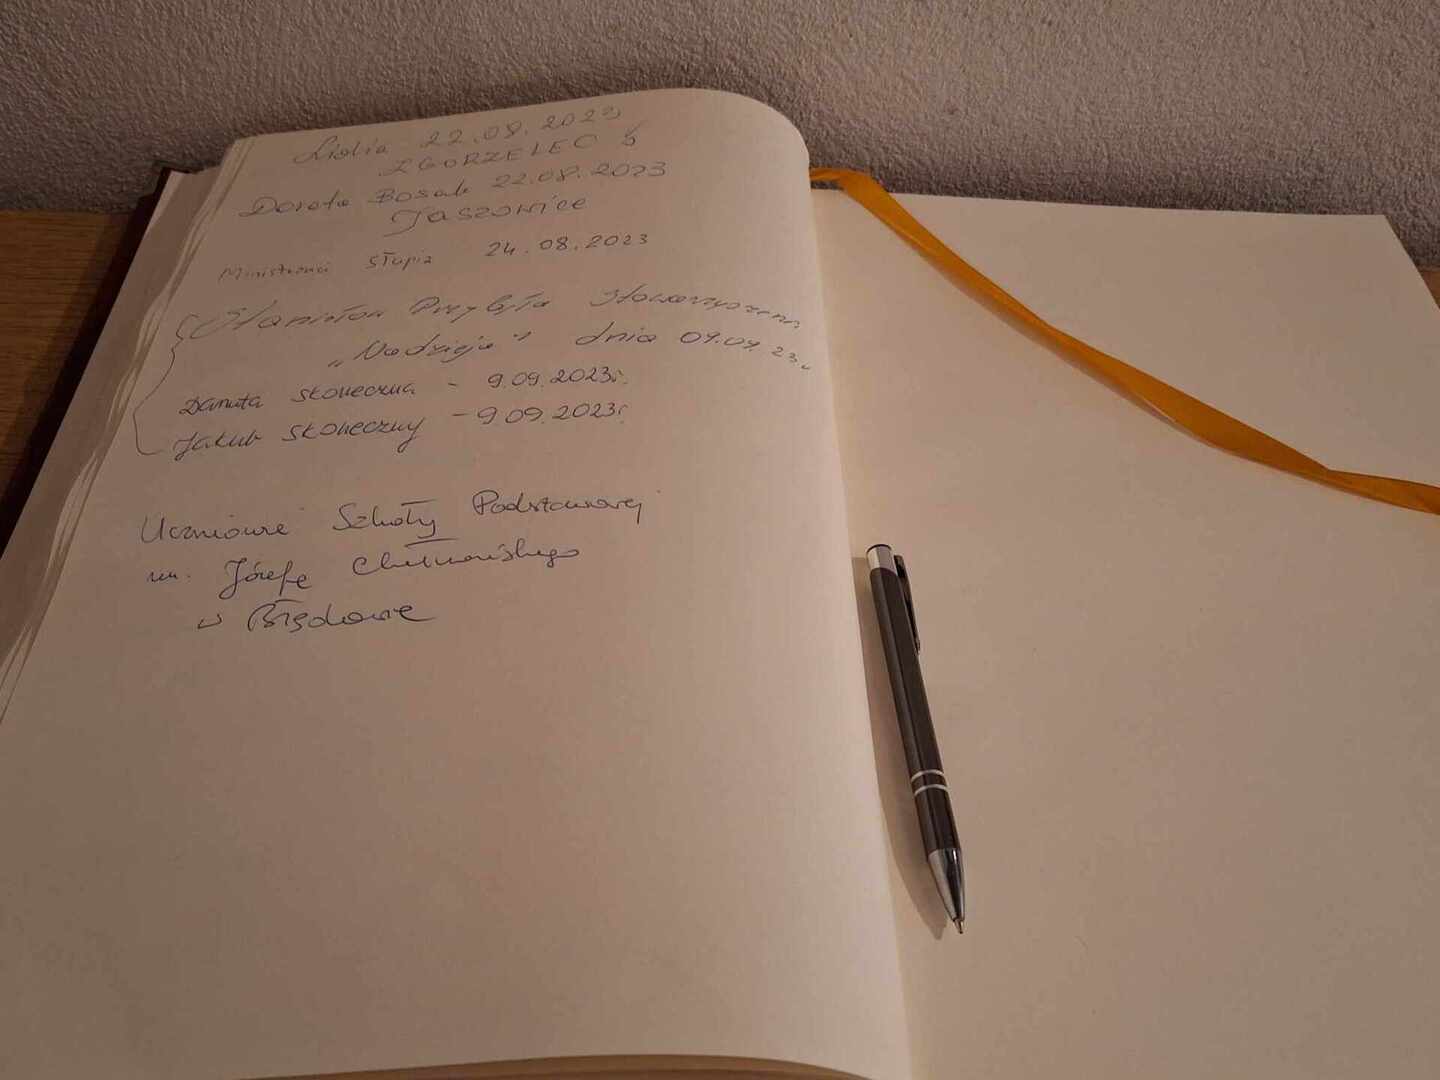 Lidia 22.08.2023
ZGORZELEC
Dorota Bosak 22.08.2023
Jaszowice
Ministranci Słupia 24.08.2023
Stanisław Przybyła Stowarzyszenie
„Nadzieja" dnia 09.09.23
Danuta Skoneczna - 9.09.2023r.
Jakub Skoneczny - 9.09.2023r.
Uczniowie Szkoły Podstawowej
im. Józefa Chełmońskiego
w Błędowie